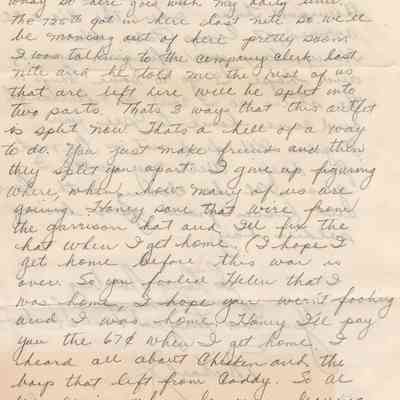 so here goes with my daily
The 735th got in here last nite so we'll
be moveing out of here pretty soon.
I was talking to the company clerk last
nite and he told me the rest of us
that are left here will be split into
two parts. Thats 3 ways that this outfit
is split now. Thats a hell of a way
to do. You just make friends and then
they split you apart. I gave up figuring
where, when, how many of us are
going. Honey save that wire from
the garrison hat and I'll fix the
hat when I get home. (I hope I
get home before this war is
over. So you fooled Helen that I
was home, I hope your wern't fooling
and I was home. Honey I'll pay
you the 67¢ when I get home. I
heard all about Chicken and the
boys that left from Caddy. So Al